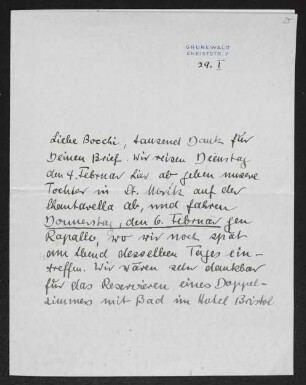 GRUNEWALD
29. I
Liebe Bocchi, tausend Dank für
Deinen Brief. Wir reisen Dienstag
den 4. Februar hier ab geben unsere
Tochter in St. Moritz auf der
Chantarella ab, und fahren
Donnerstag, den 6. Februar gen
Rapallo, wo wir noch spät
am Abend desselben Tages ein-
treffen. Wir wären sehr dankbar
für das Reservieren eines Doppel-
zimmers mit Bad im Hotel Bristol